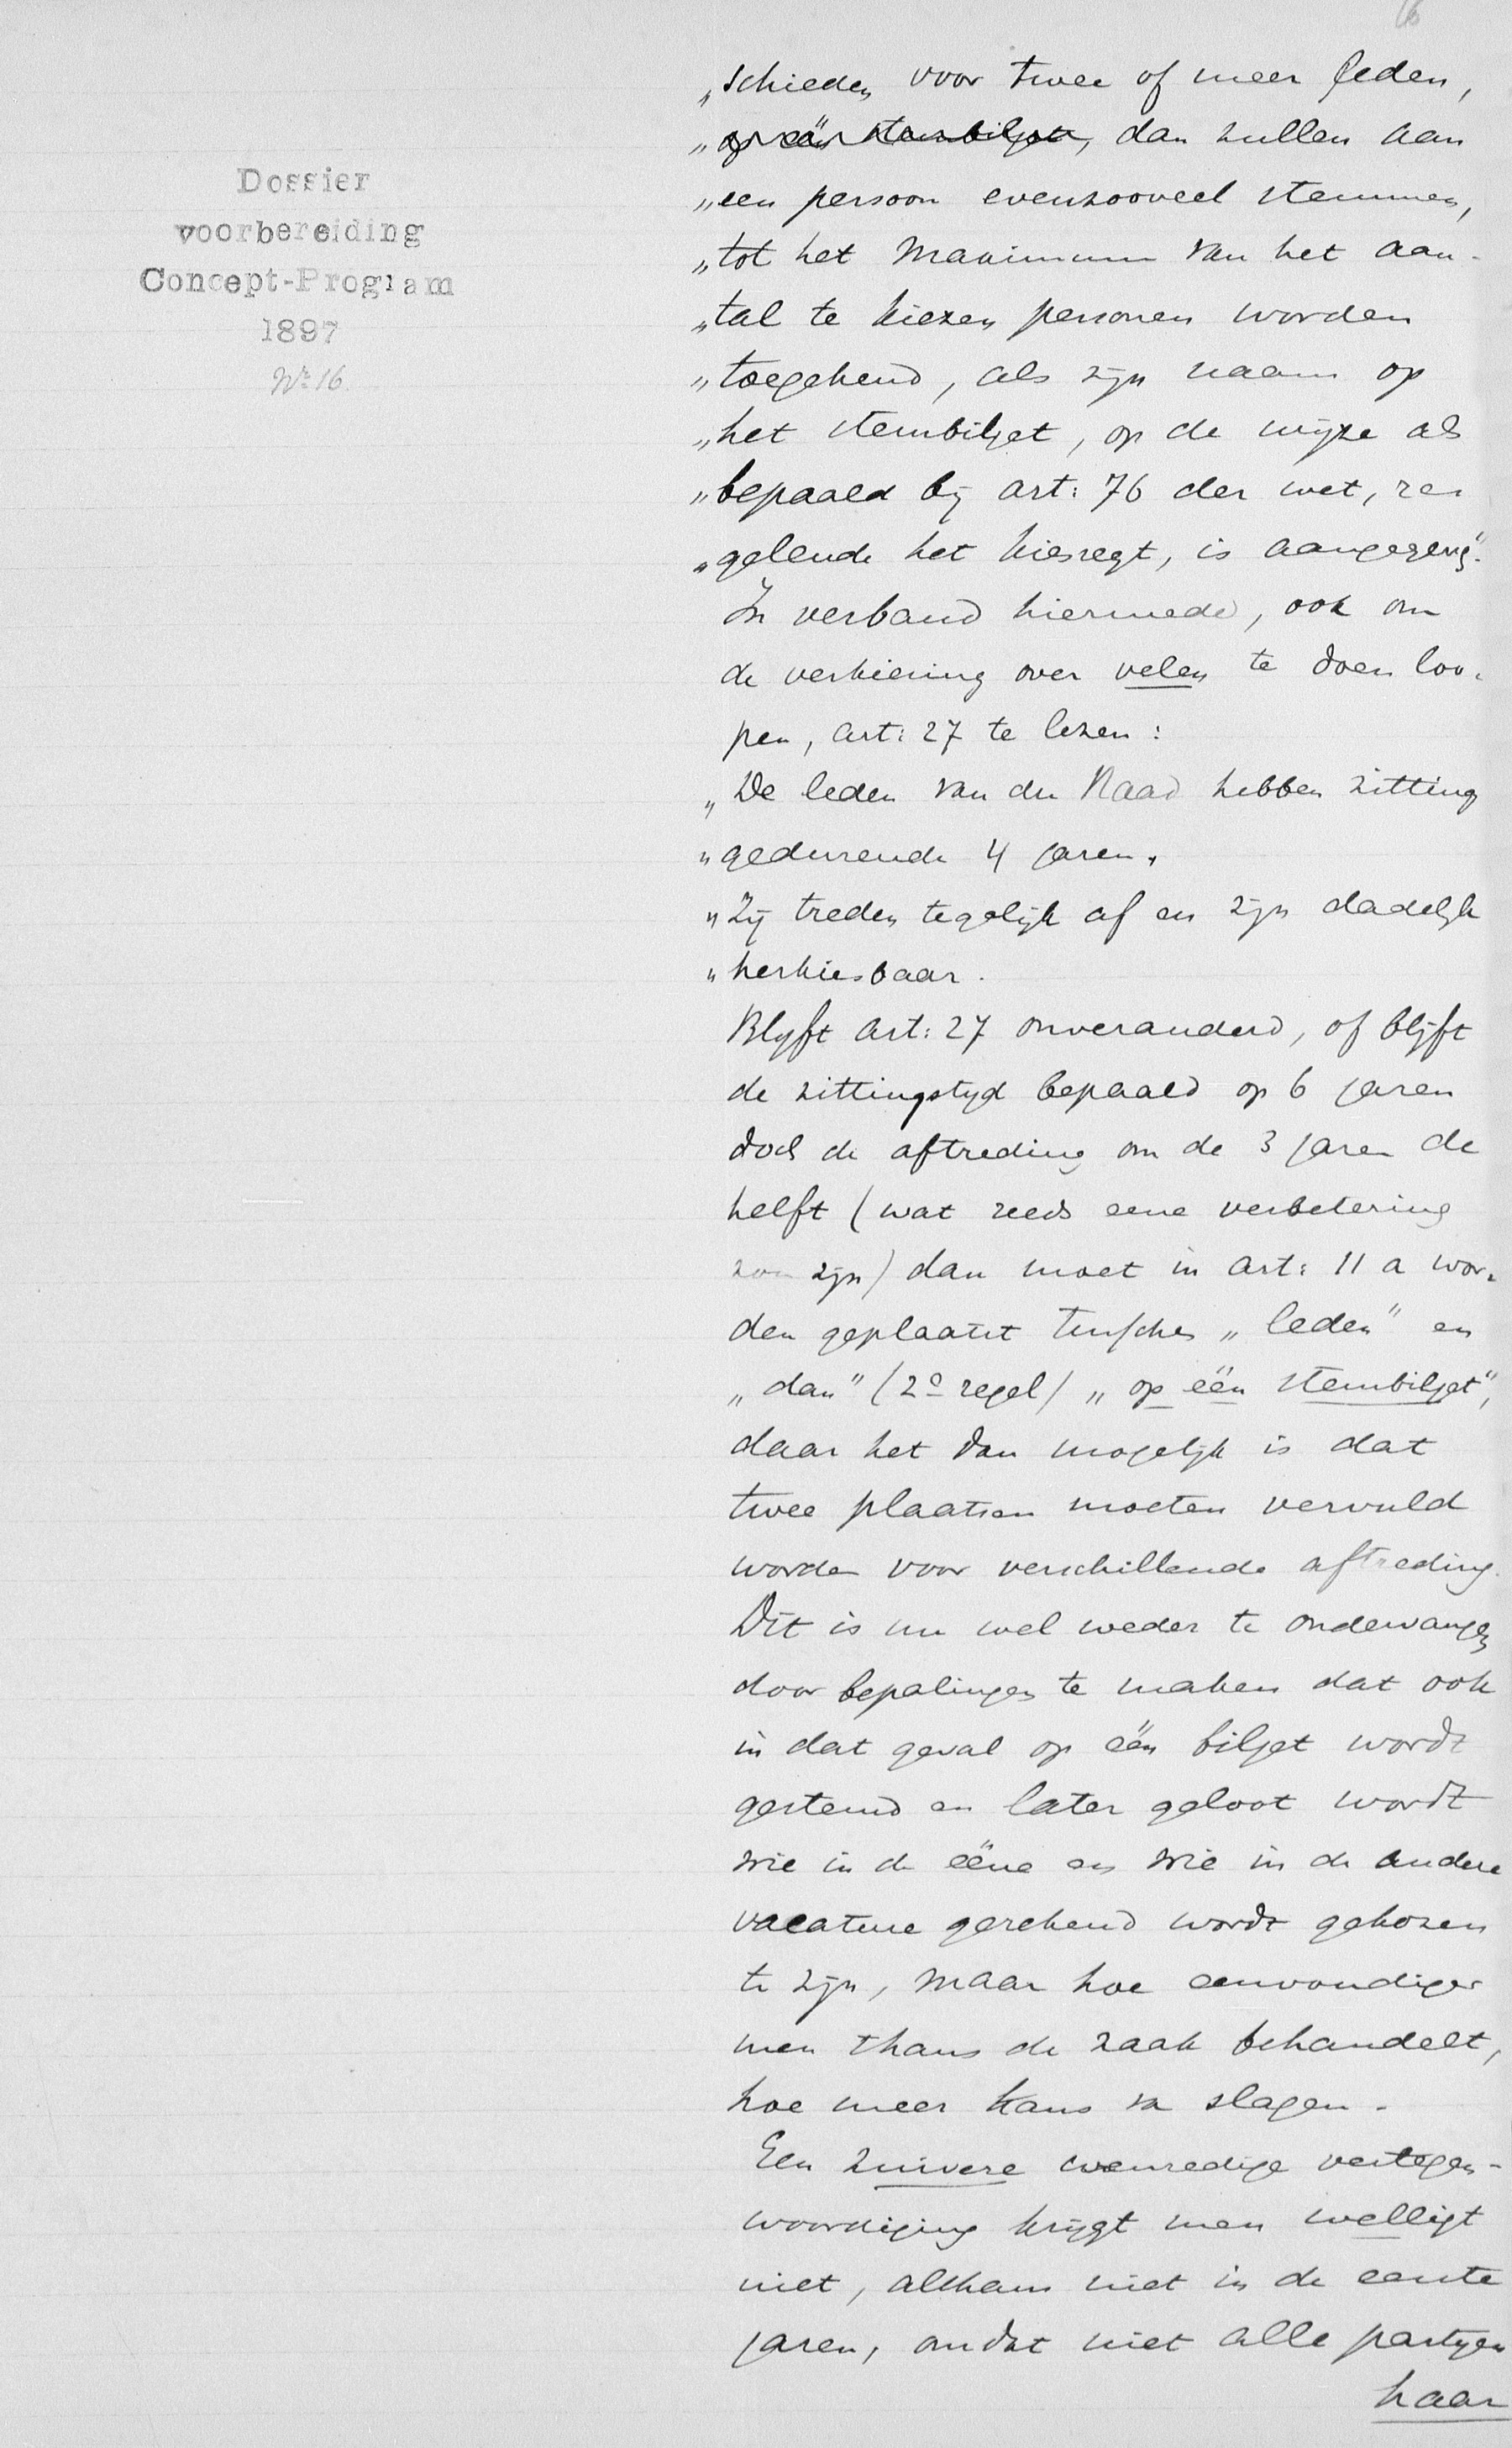 Dossier
voorbereiding
Concept-Program
1897
No 16.
„schieden voor twee of meer leden,
„op één stembiljet, dan zullen aan
„een persoon evenzooveel stemmen,
„tot het maximum van het aan-
„tal te kiezen personen worden
„toegekend, als zijn naam op
„het stembiljet, op de wijze als
„bepaald bij art: 76 der wet, re-
„gelende het kiesregt, is aangegeven".
In verband hiermede, ook om
de verkiezing over velen te doen loo-
pen, art: 27 te lezen:
„De leden van den Raad hebben zitting
„gedurende 4 jaren.
„Zij treden tegelijk af en zijn dadelijk
„herkiesbaar.
Blyft art: 27 onveranderd, of blijft
de zittingstyd bepaald op 6 jaren
doch de aftreding om de 3 jaren de
helft (wat reeds eene verbetering
zou zijn) dan moet in art: 11 a wor-
den geplaatst tusschen „leden" en
„dan" (2o regel) „op één stembiljet",
daar het dan mogelijk is dat
twee plaatsen moeten vervuld
worden voor verschillende aftreding.
Dit is nu wel weder te ondervangen
door bepalingen te maken dat ook
in dat geval op één biljet wordt
gestemd en later geloot wordt
wie in de ééne en wie in de andere
vacature gerekend wordt gekozen
te zijn, maar hoe eenvoudiger
men thans de zaak behandelt,
hoe meer kans van slagen.
Een zuivere evenredige vertegen-
woordiging krijgt men welligt
niet, althans niet in de eerste
jaren, omdat niet alle partyen
haar